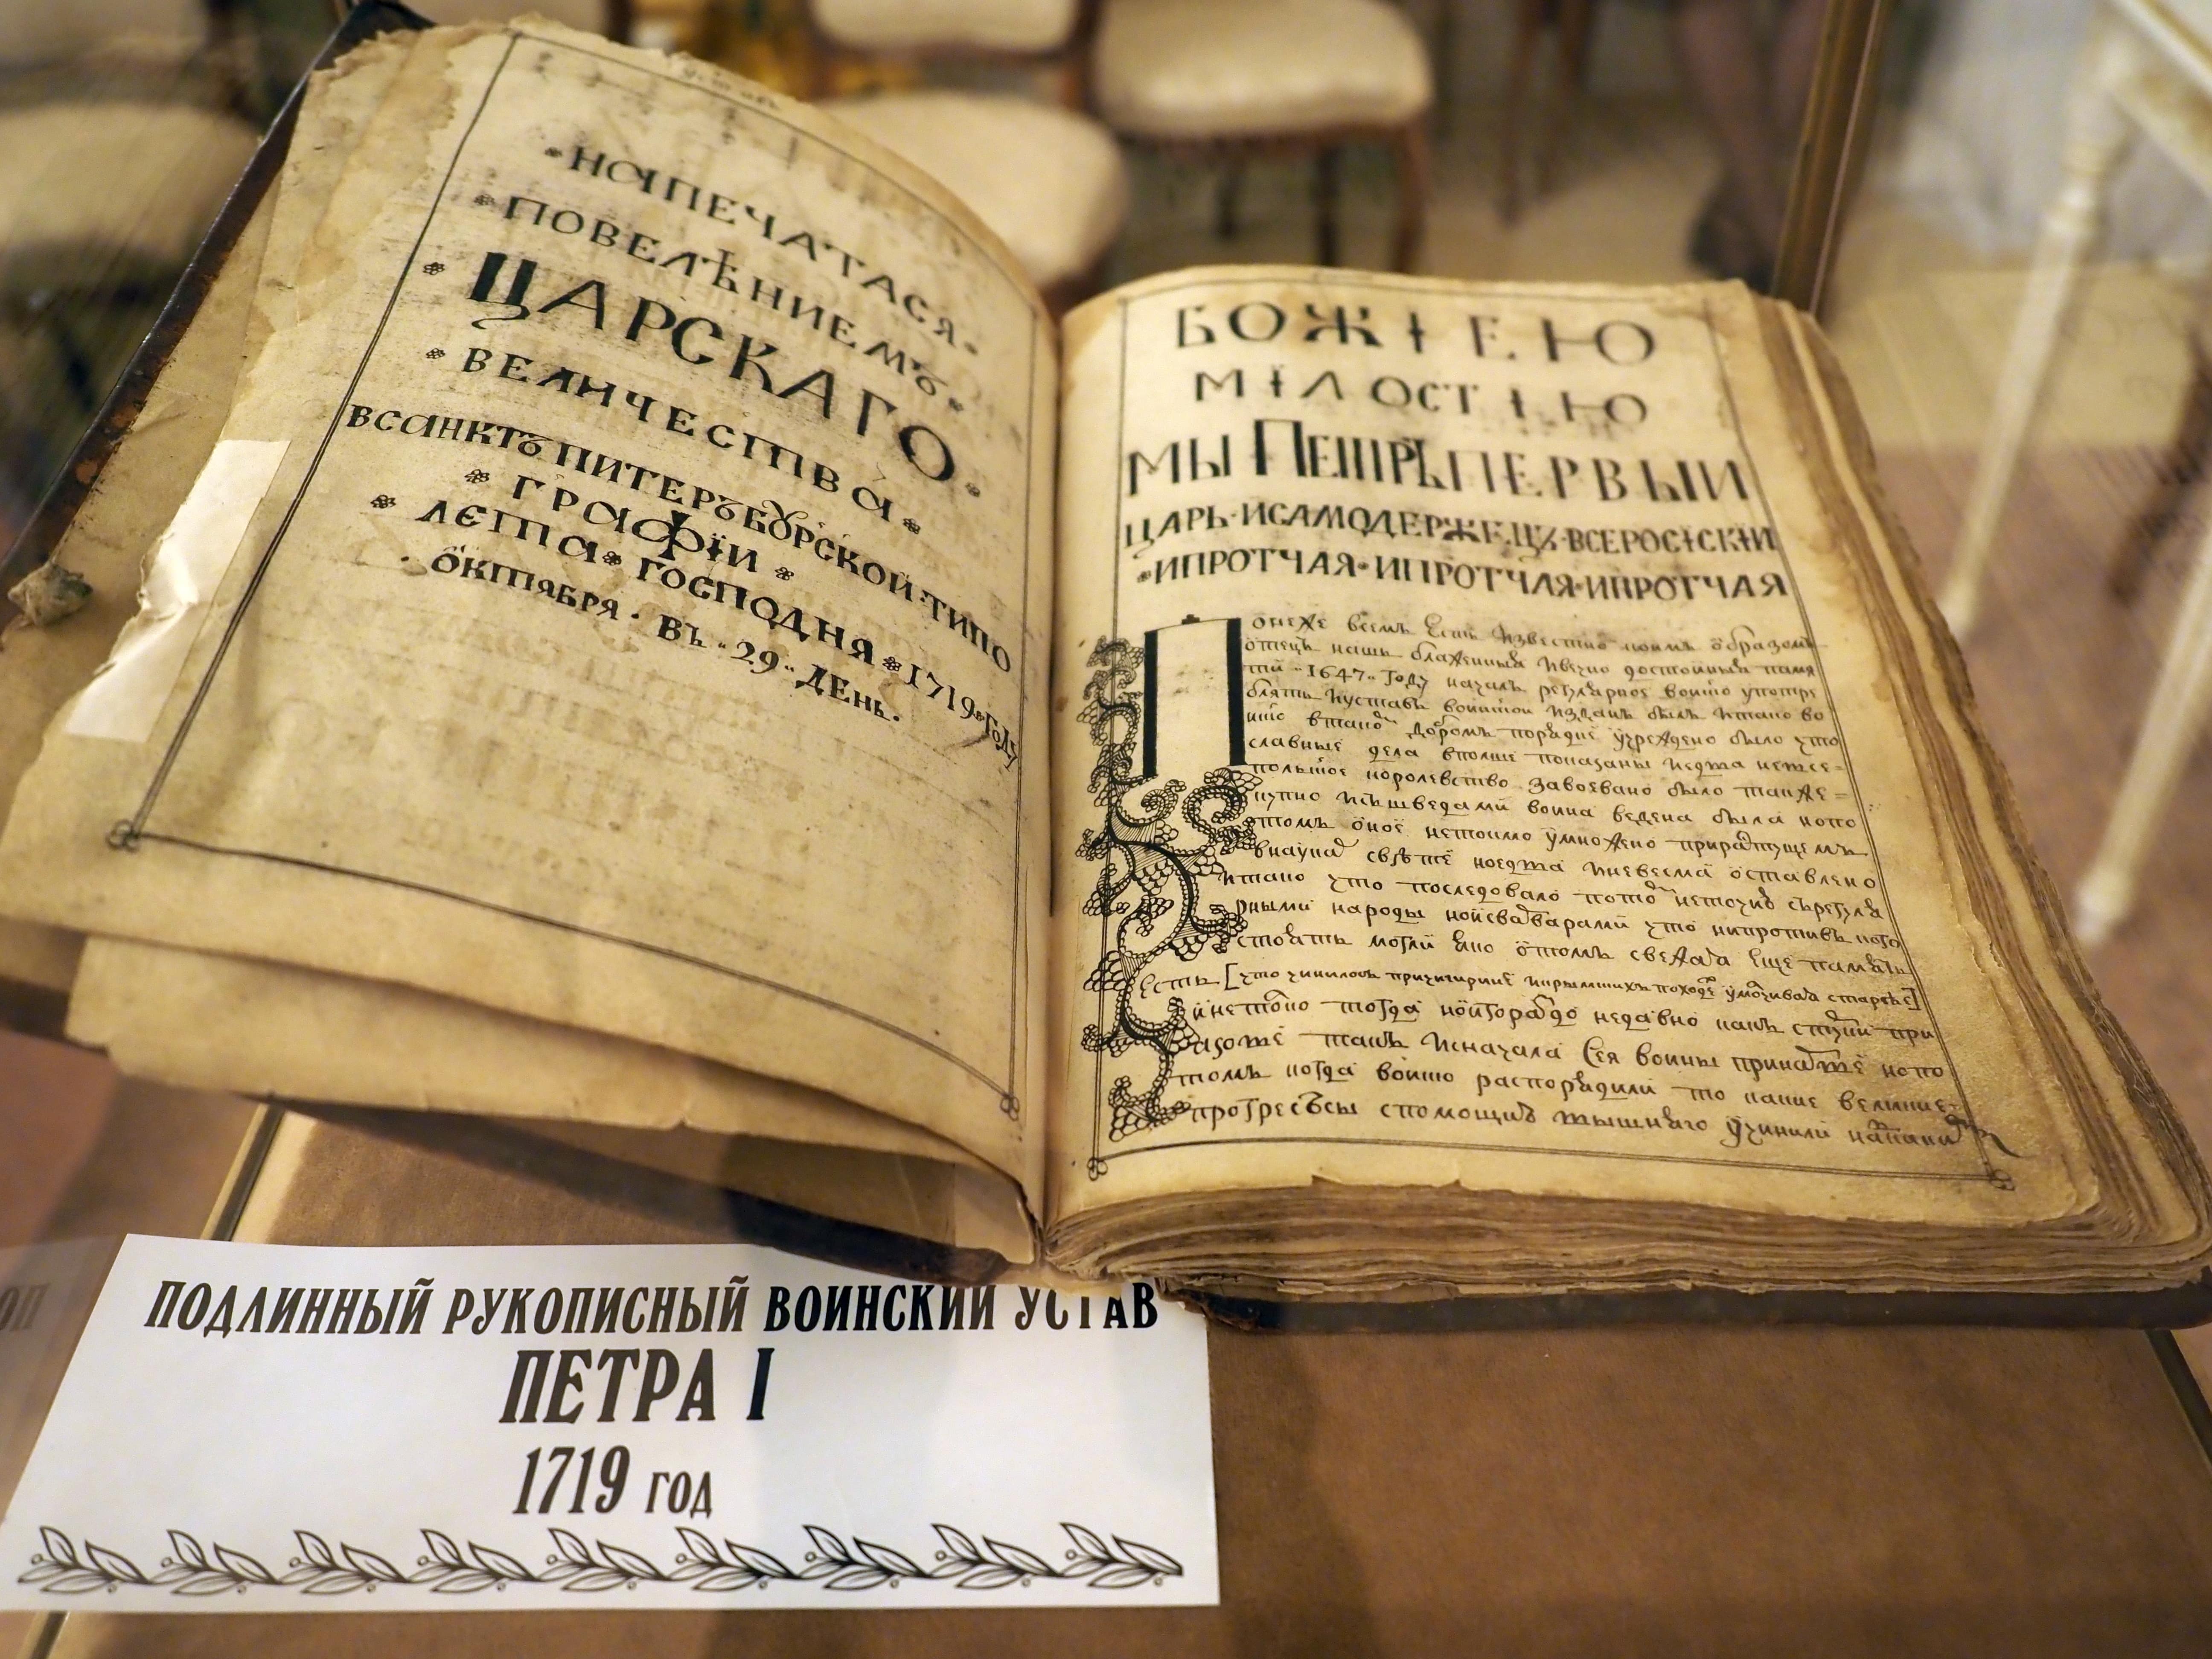 НАПЕЧАТАСЯ
ПОВЕЛѢНИЕМЪ
ЦАРСКАГО
ВЕЛИЧЕСТВА
ВСАНКТЪПИТЕРЪБУРСКОЙ ТИПО
ГРАѲIИ
ЛЕТА ГОСПОДНЯ 1719 ГОДУ
ОКТЯБРЯ ВЪ 29 ДЕНЬ.
БОЖІЕЮ
МІЛОСТІЮ
МЫ ПЕТРЪ ПЕРВЫИ
ЦАРЬ ИСАМОДЕРЖЕЦЪ ВСЕРОСІСКІИ
ИПРОТЧАЯ ИПРОТЧАЯ ИПРОТЧАЯ
Понеже всемъ есть известно коимъ образомъ
отецъ нашъ блаженныя ивечно достойныя памя
ти 1647 году началъ регулярное воиско употре
блять иуставъ воинскои изданъ былъ итако во
иско втако добромъ порядке учреждено было что
славные дела вполше показаны иедва нетсе=
польское королевство завоевано было также=
купно исъшведами воина ведена была нопо
томъ оное нетокмо умножено прирастущемъ
внаукахъ свѣте ноедва иневесма оставлено
итако что последовало потом неточию сърегуля
рными народы ноисваварами что нипротивъ кого
стоять могли яко отомъ свежая еще память
есть [что чинилось причигирине икрымскихъ походе умолчивая старее]
инетокмо тогда ноигораздо недавно какъ стурки при
азове такъ исначала сея воины принарве нопо
томъ когда воиско распорядили то какие великие
прогресъсы спомощию вышняго учинили надъ
ПОДЛИННЫЙ РУКОПИСНЫЙ ВОИНСКИЙ УСТАВ
ПЕТРА I
1719 ГОД